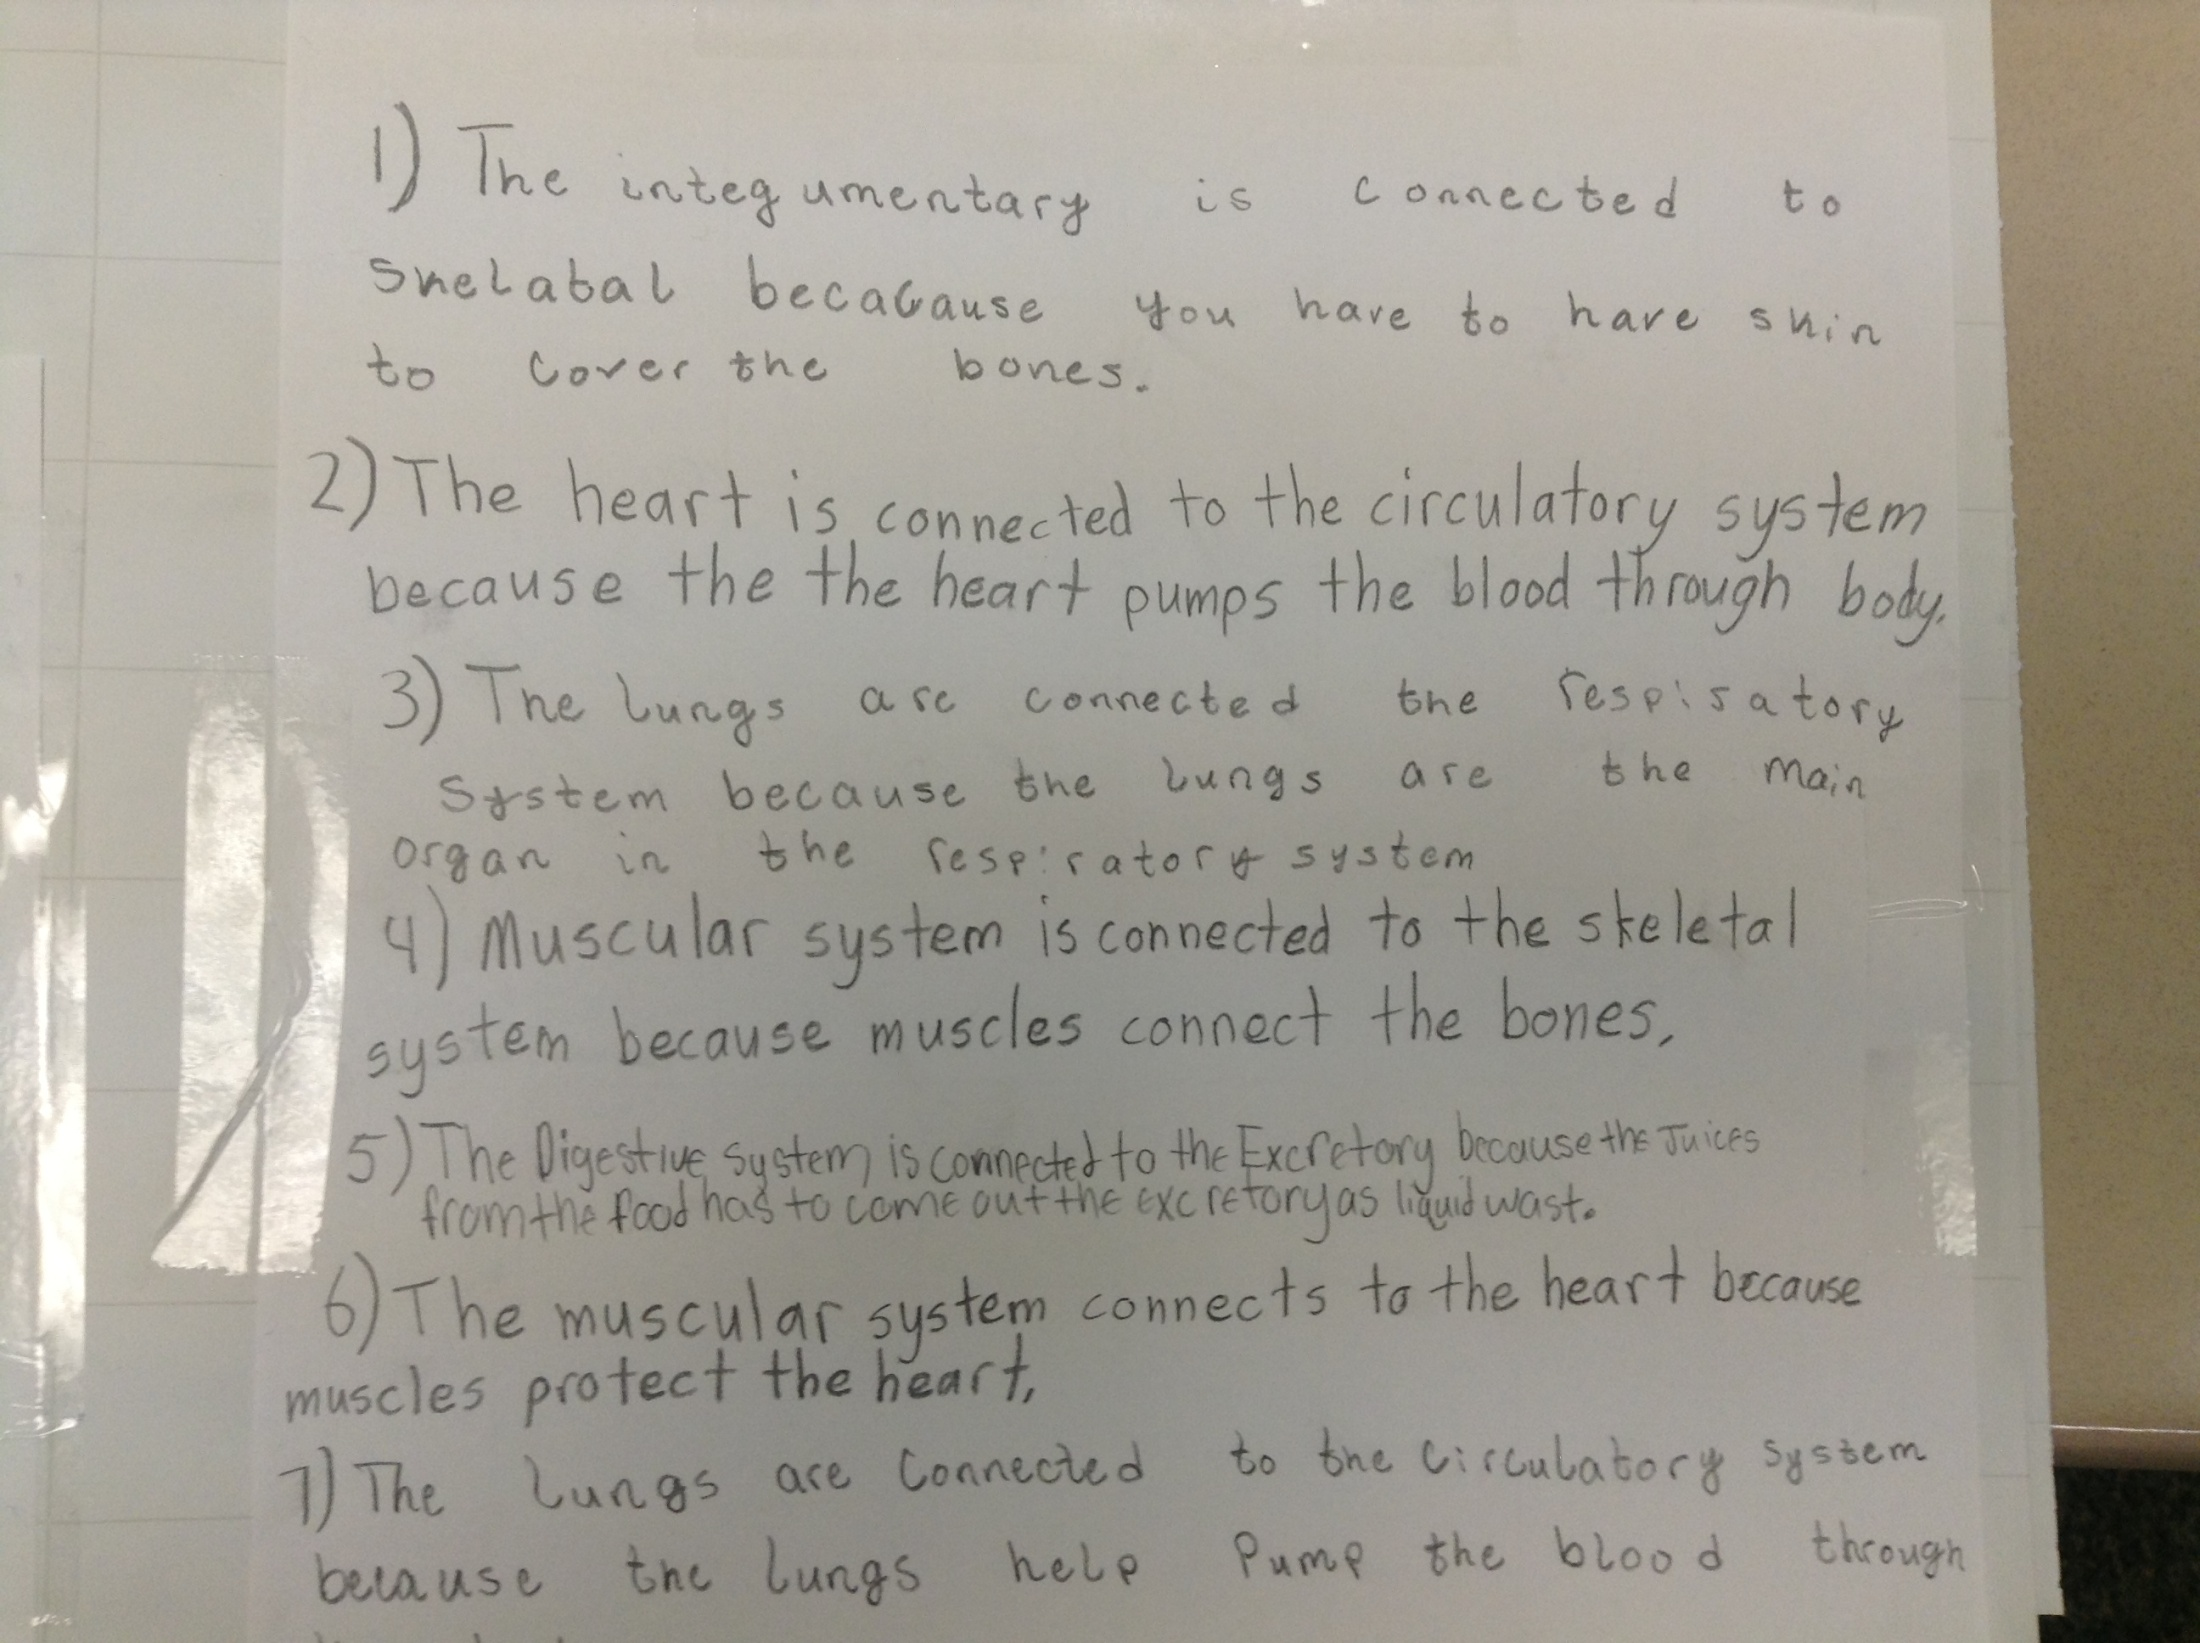 1) The integumentary is connected to
Skelatal becacause you have to have skin
to cover the bones.
2) The heart is connected to the circulatory system
because the the heart pumps the blood through body.
3) The lungs are connected the respiratory
System because the lungs are the main
organ in the respiratory system
4) Muscular system is connected to the skeletal
system because muscles connect the bones.
5) The Digestive system is connected to the Excretory because the Juices
from the food has to come out the excretory as liquid wast.
6) The muscular system connects to the heart because
muscles protect the heart.
7) The lungs are Connected to the Circulatory System
because the lungs help Pump the blood through